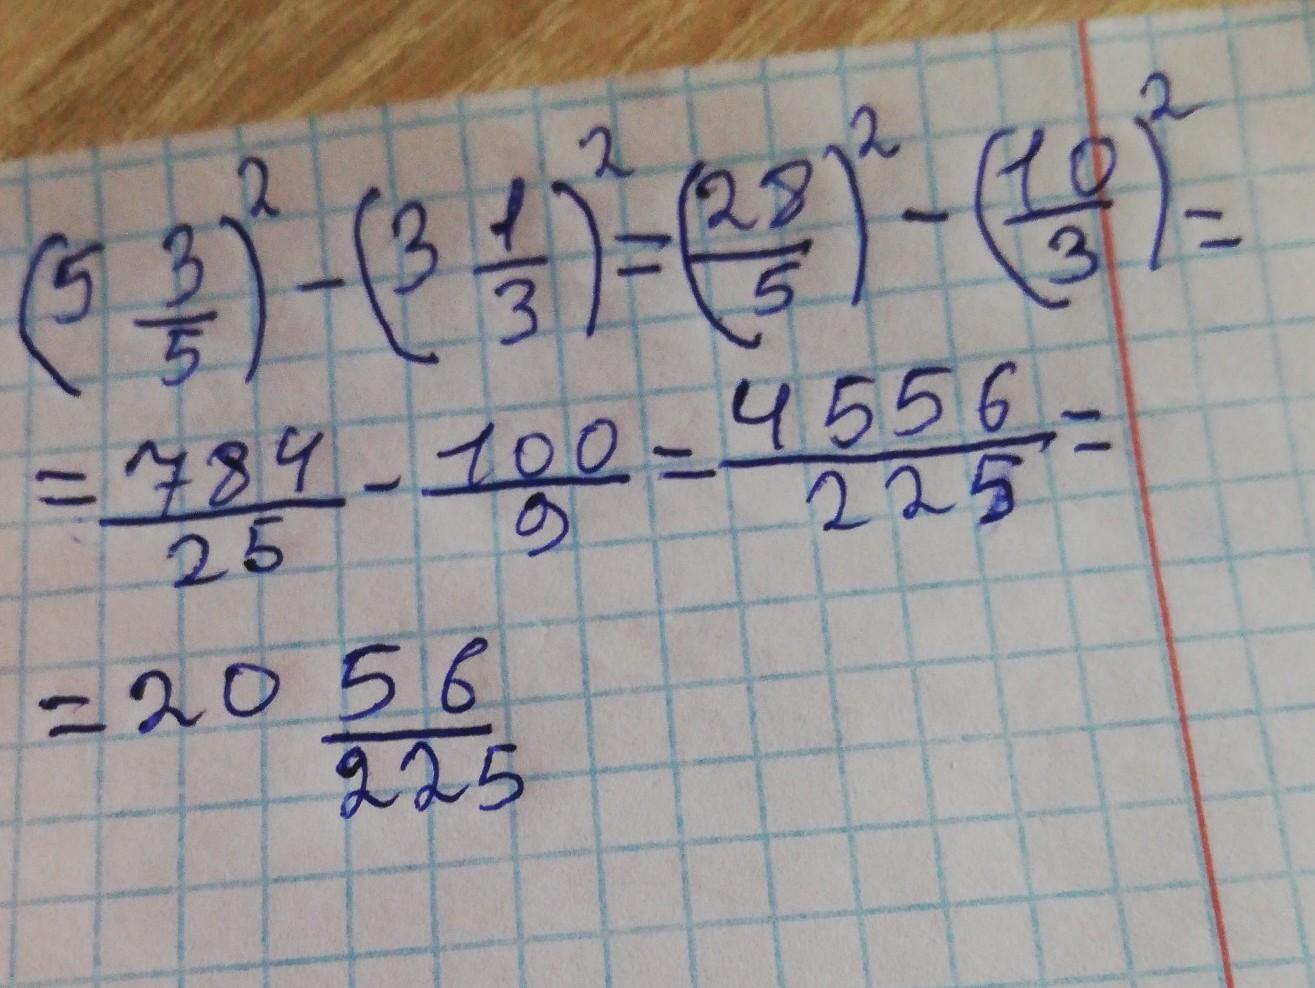 (5 3/5)² - (3 1/3)² = (28/5)² - (10/3)² =
= 784/25 - 100/9 = 4556/225 =
= 20 56/225